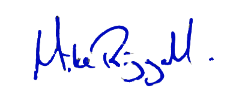 Mike Riggall.